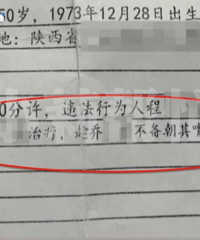 50岁，1973年12月28日出生
地：陕西省
0分许，违法行为人程
治疗，赵乔 不备朝其嘴